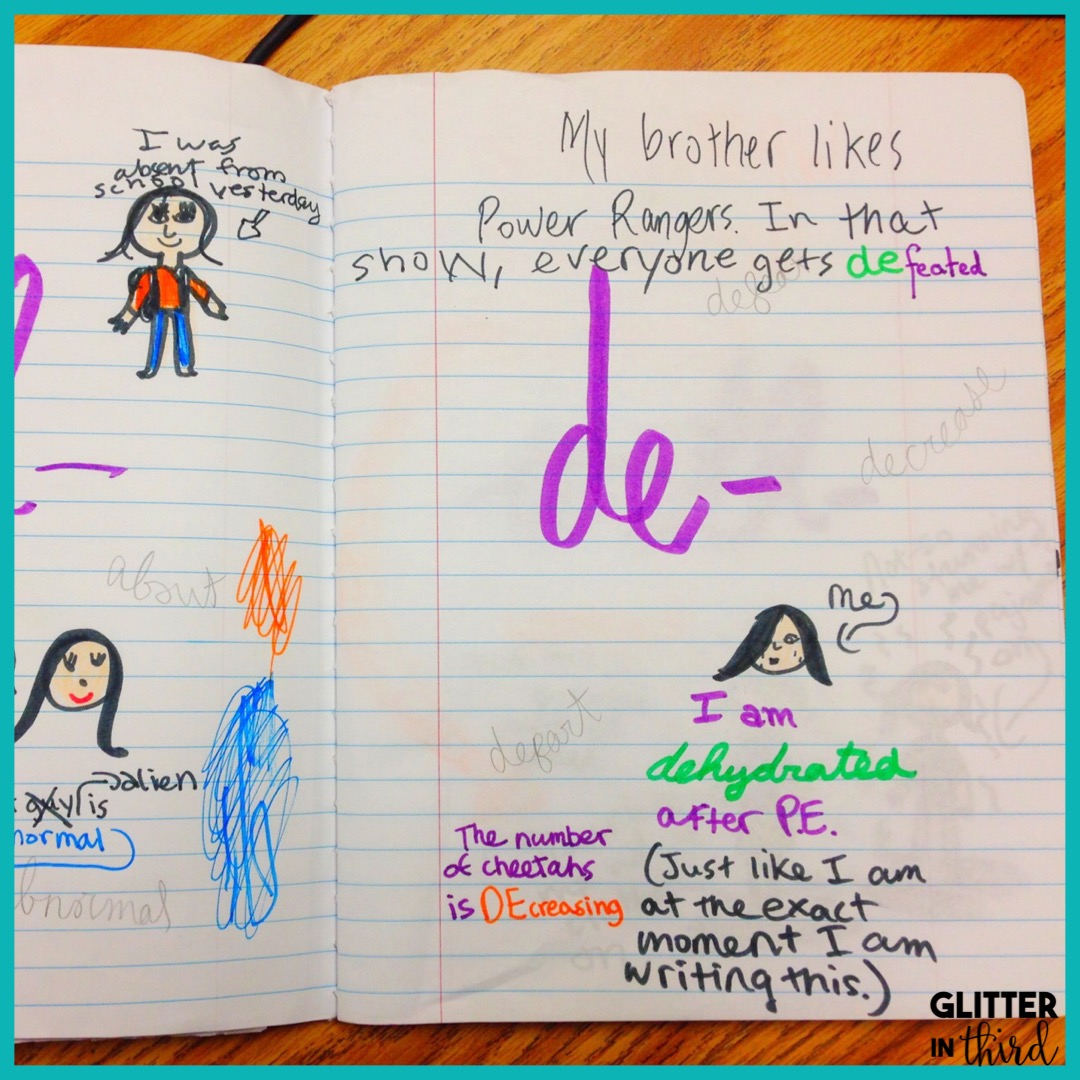 I was
absent from
school yesterday
about
alien
is
normal
bnormal
My brother likes
Power Rangers. In that
show, everyone gets defeated
defeat
de-
decrease
me
depart
I am
dehydrated
after P.E.
(Just like I am
at the exact
moment I am
writing this.)
The number
of cheetahs
is DEcreasing
GLITTER
IN third